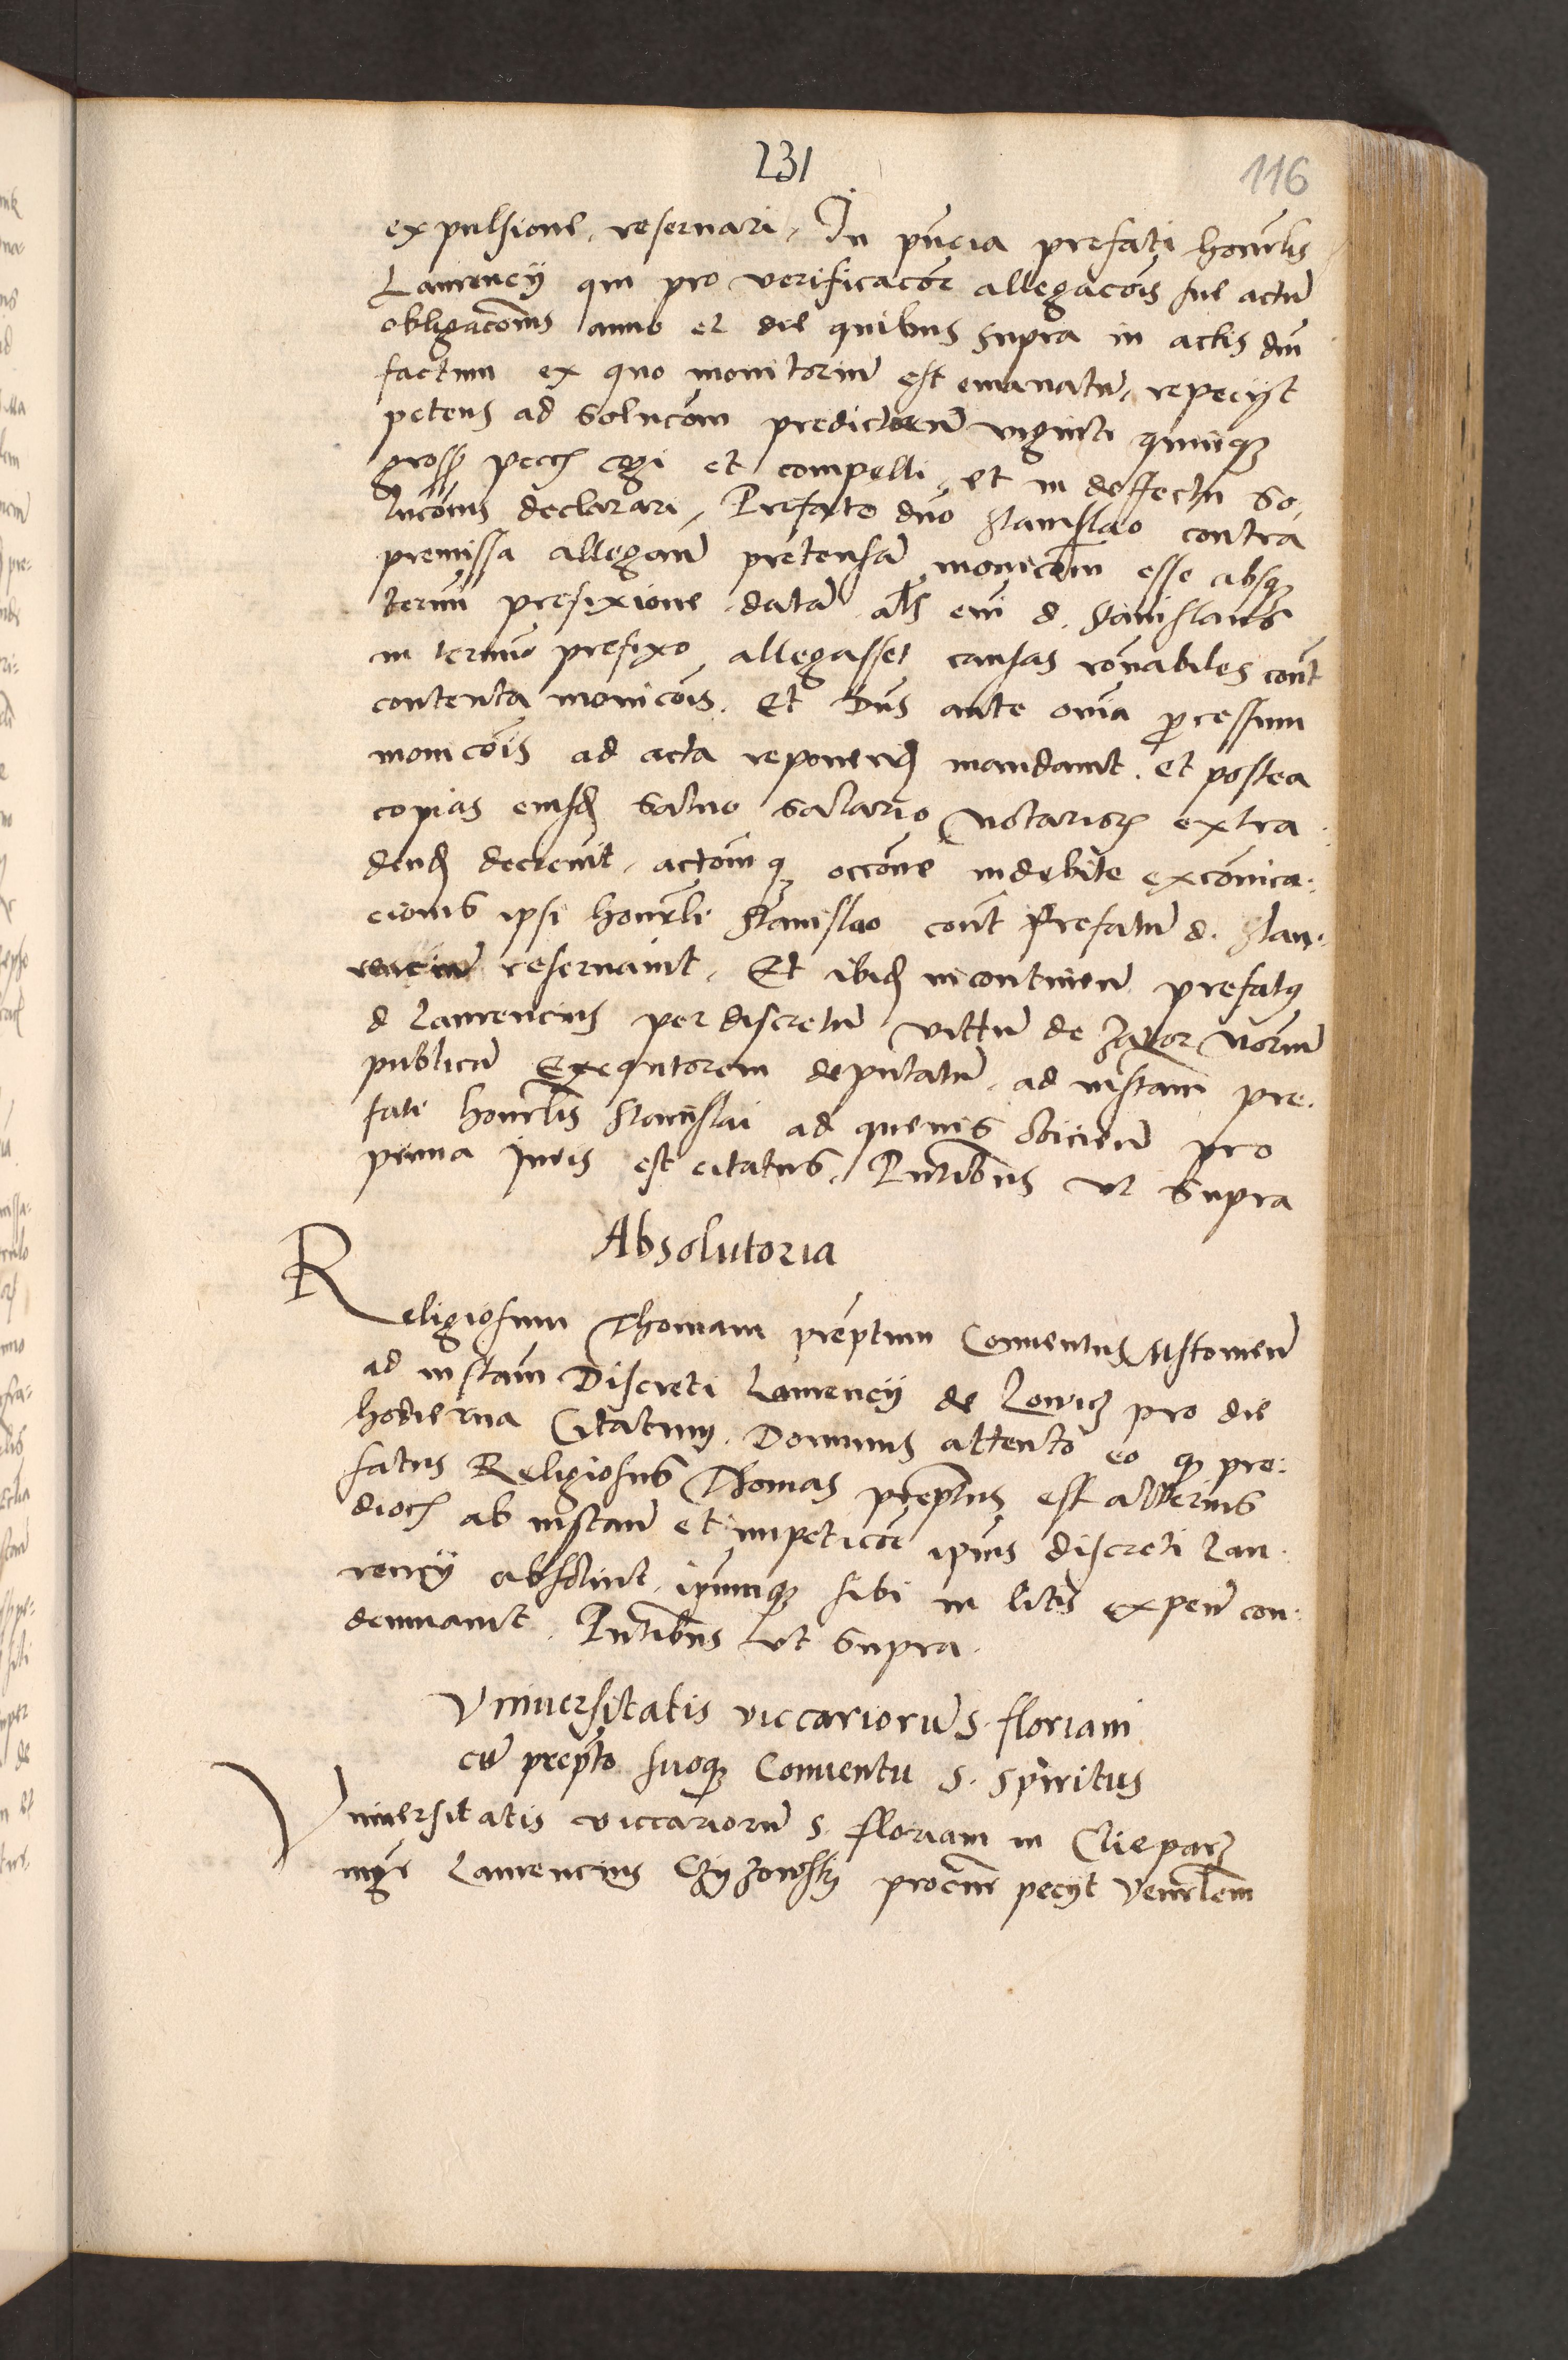 231
116
expulsione, reservari, In pñcia prefati honrlis
Laurencij qui pro verificacõe allegacõis sue actũ
obligacõnis anno et die quibus supra in actis dñi
factum ex quo monitoriũ est emanatũ, repecijt
petens ad solucõm predictorũ viginti quinq3
gross pecc cogi et compelli, et in deffectu so,
lucõnis declarari, Prefato dño Stanislao contra
premissa allegan̄ pretensã monicõem esse absq3
termi prefixione datã als eni d. Stanislaus
in termio prefixo allegasset causas rõnabiles cont̃
contenta monicõis. Et Dñs ante oñia ꝓcessum
monicõis ad acta reponend mandavit. et postea
copias eiusd salvo salario Notarior extra
dend decrevit, actõmq occõne indebite excõmica:
cionis ipsi honrli Stanislao cont̃ prefatũ d. Lau:
rencium reservavit, Et ibid incontinen̄ prefatq
d Laurencius per discretũ Vittũ de Zator Notriũ
publicũ Exequtorem deputatũ, ad instam̃ pre:
fati honrlis Stanislai ad quemvis obicien̄ pro
prima Juris est citatus, Pñtibus ut supra
Absolutoria
Religiosum Thomam prẽptum Conventus Mstovien̄
ad instam̃ Discreti Laurencij de Lowicz pro die
hodierna Citatum, Dominus attento eo q pre:
fatus Religiosus Thomas prẽptus est alterius
dioc ab instan̄ et impeticõe ipius discreti Lau:
rencij absolvit, ipumq3 sibi in litis expen̄ con:
demnavit, Pñtibus ut supra.
Universitatis viccariorũ S. floriani
cũ prepto suoq3 Conventu S. Spiritus
Universitatis viccariorũ S. floriani in Clepar3
mgr Laurencius Czyzowsky procũr pecijt Venrlem